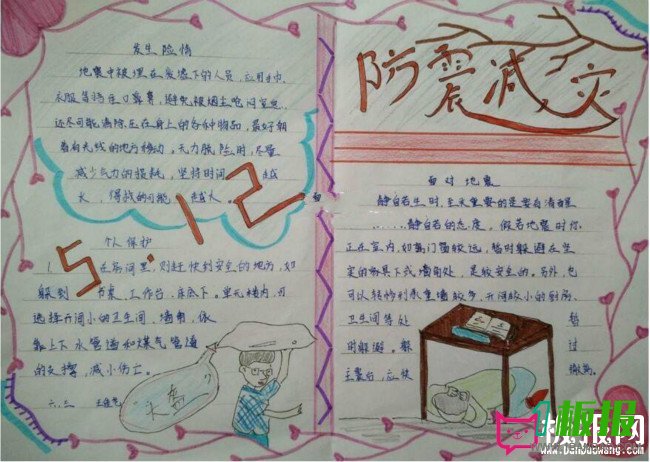 发生险情
地震中被埋在废墟下的人员，应用手巾、
衣服等捂住口鼻，避免被烟尘呛闷窒息，
还尽可能清除压在身上的各种物品，最好朝
着有光线的地方移动，无力脱险时，尽量
减少气力的损耗，坚持时间越
长，得救的可能越大。
5.12
个人保护
在房间里，则赶快到安全的地方，如
躲到书桌、工作台、床底下。单元楼内，可
选择开间小的卫生间、墙角，依
靠上下水管道和煤气管道
的支撑，减小伤亡。
防震减灾
面对地震
静自若生时，至关重要的是要有清醒
静自若的态度，假若地震时你
正在室内，如离门窗较远，暂时躲避在坚
定的家具下或墙角处，是较安全的。另外，也
可以转移到承重墙较多、开间较小的厨房、
卫生间等处暂
时躲避。躲过
主震后，应快撤离。
板报网
www.banbaowang.com